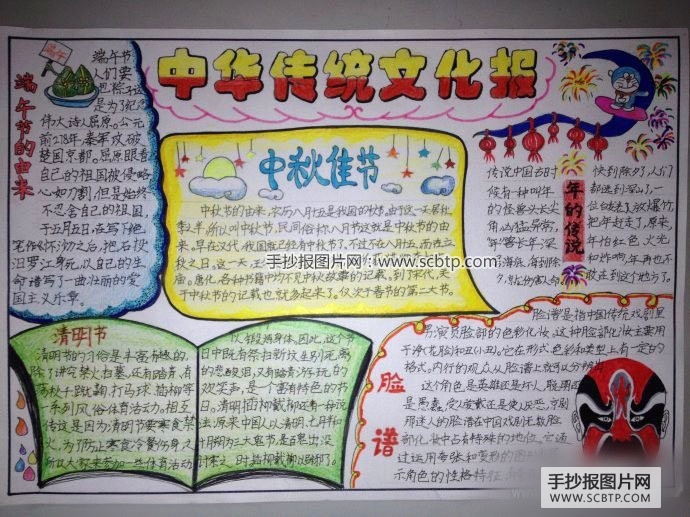 中华传统文化报
端午
端午节的由来
端午节
人们要
吃粽子这
是为了纪念
伟大诗人屈原。公元
前278年,秦军攻破
楚国京都。屈原眼看
自己的祖国被侵略
心如刀割,但是始终
不忍舍自己的祖国
于五月五日,在写下绝
笔作《怀沙》之后,抱石投
汨罗江身死,以自己的生
命谱写了一曲壮丽的爱
国主义乐章。
中秋佳节
中秋节的由来,农历八月十五是我国的中秋节。由于这一天居秋
季之半,所以叫中秋节,民间俗称八月节这就是中秋节的由来
早在汉代,我国就已经有中秋节了,不过不在八月十五,而在立
秋之日。这一天,
手抄报图片网 www.scbtp.com
唐代,各种书籍中
中秋故事的记载。到了宋代,关
于中秋节的记载也就多起来了。仅次于春节的第二大节。
年的传说
传说中国古时
候有一种叫年
的怪兽头长尖
角,凶猛异常,
年兽长年深
海底,每到除
夕,就会伤人命
快到除夕人们
都逃到深山,一
位白发老
放爆竹,
把年赶走了,原来,
年怕红色、火光
和炸响,年再也不
敢走到这个地方了。
清明节
清明节的习俗是丰富有趣的,
除了讲究禁火扫墓,还有踏青、有
荡秋千、蹴鞠、打马球、插柳等
一系列风俗体育活动。相
传这是因为清明节要寒食禁
火,为了防止寒食冷餐伤身,
所以大家来参加一些体育活动
以锻炼身体,因此,这个节
日中既有祭扫新坟生别死离
的悲酸泪,又有踏青游玩的
欢笑声,是一个富有特色的节
日。清明插柳戴柳还有一种说
法:原来中国人以清明、七月半和
十月朔为三大鬼节,是百鬼出没
讨索之时
脸谱
脸谱是指中国传统戏剧里
男演员脸部的色彩化妆。这种脸部化妆主要用
于净(花脸)和丑(小丑)。它在形式、色彩和类型上有一定的
格式。内行的观众从脸谱上就可以分辨出
这个角色是英雄还是坏人,聪明还
是愚蠢,受人爱戴还是使人厌恶,京剧
那迷人的脸谱在中国戏剧无数脸
部化妆中占有特殊的地位。它通
过运用夸张和变形的图形
示角色的性格特征,
手抄报图片网
WWW.SCBTP.COM